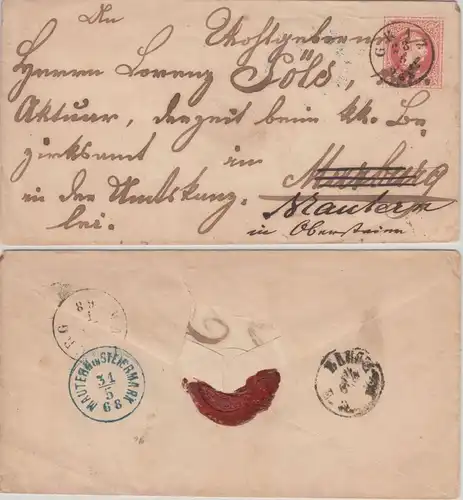 An Wohlgeboren
Herrn Lorenz Göls,
Aktuar, derzeit beim kk. Be-
zirksamt in Marburg
in der Amtskanz-
lei. Mautern
in Obersteier
GRAZ
MAUTERN IN STEIERMARK
31
5
68